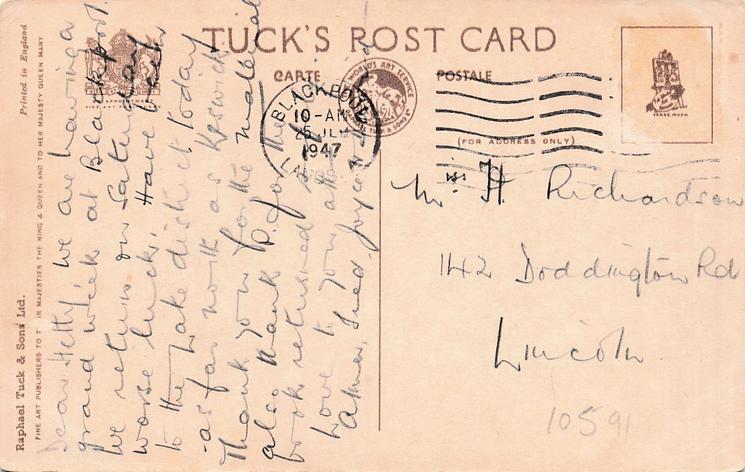 TUCK'S POST CARD
CARTE POSTALE
(FOR ADDRESS ONLY)
WORLD'S ART SERVICE
TRADE MARK
BLACKPOOL
10-AM
25 JLY
1947
Printed in England
Raphael Tuck & Sons Ltd.
FINE ART PUBLISHERS TO THEIR MAJESTIES THE KING & QUEEN AND TO HER MAJESTY QUEEN MARY
Dear Hetty we are having a
grand week at Blackpool.
We return on Saturday
worse luck. Have been
to the Lake district today
as far north as Keswick
Thank you for the material
also thank P. for the
book returned
Love to you all
Joyce
H. Richardson
142 Doddington Rd
Lincoln.
10591